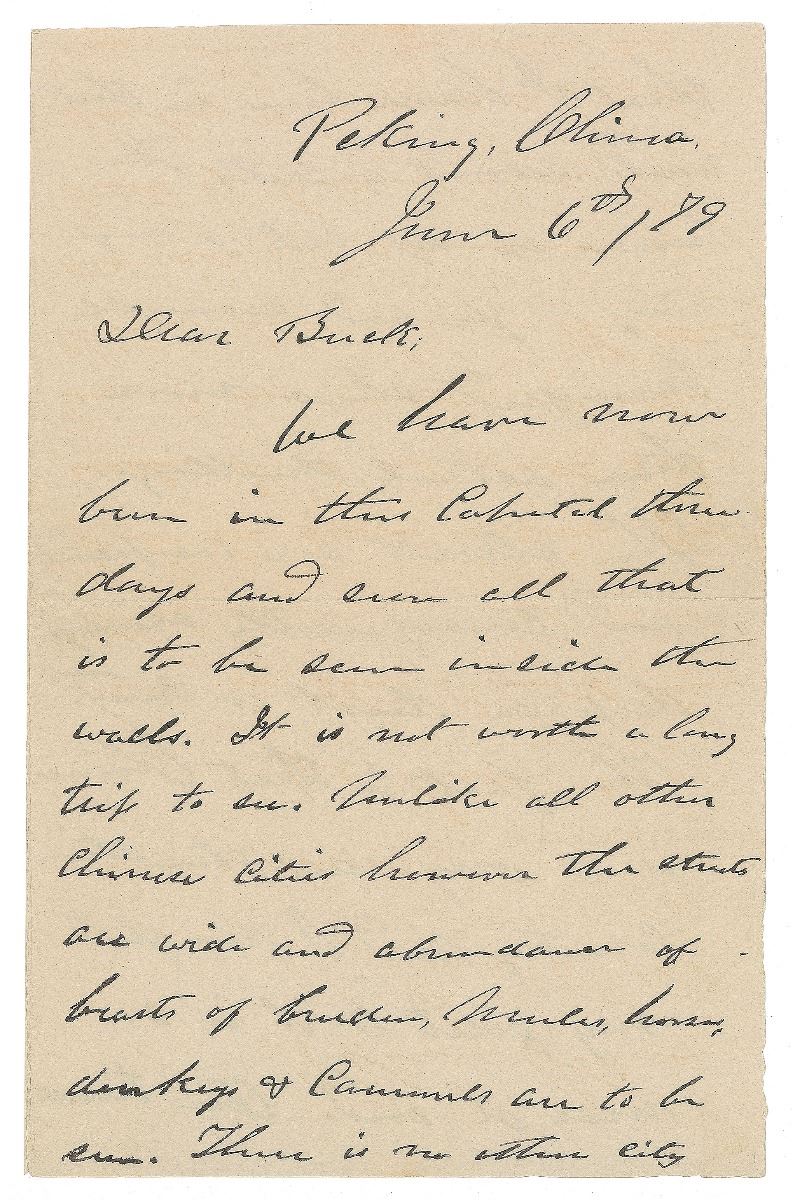 Peking, China.
June 6th/79
Dear Buck;
We have now
been in this Capital three
days and seen all that
is to be seen inside the
walls. It is not worth a long
trip to see. Unlike all other
Chinese cities however the streets
are wide and abundance of
beasts of burden, Mules, horses,
donkeys & Cammels are to be
seen. There is no other city